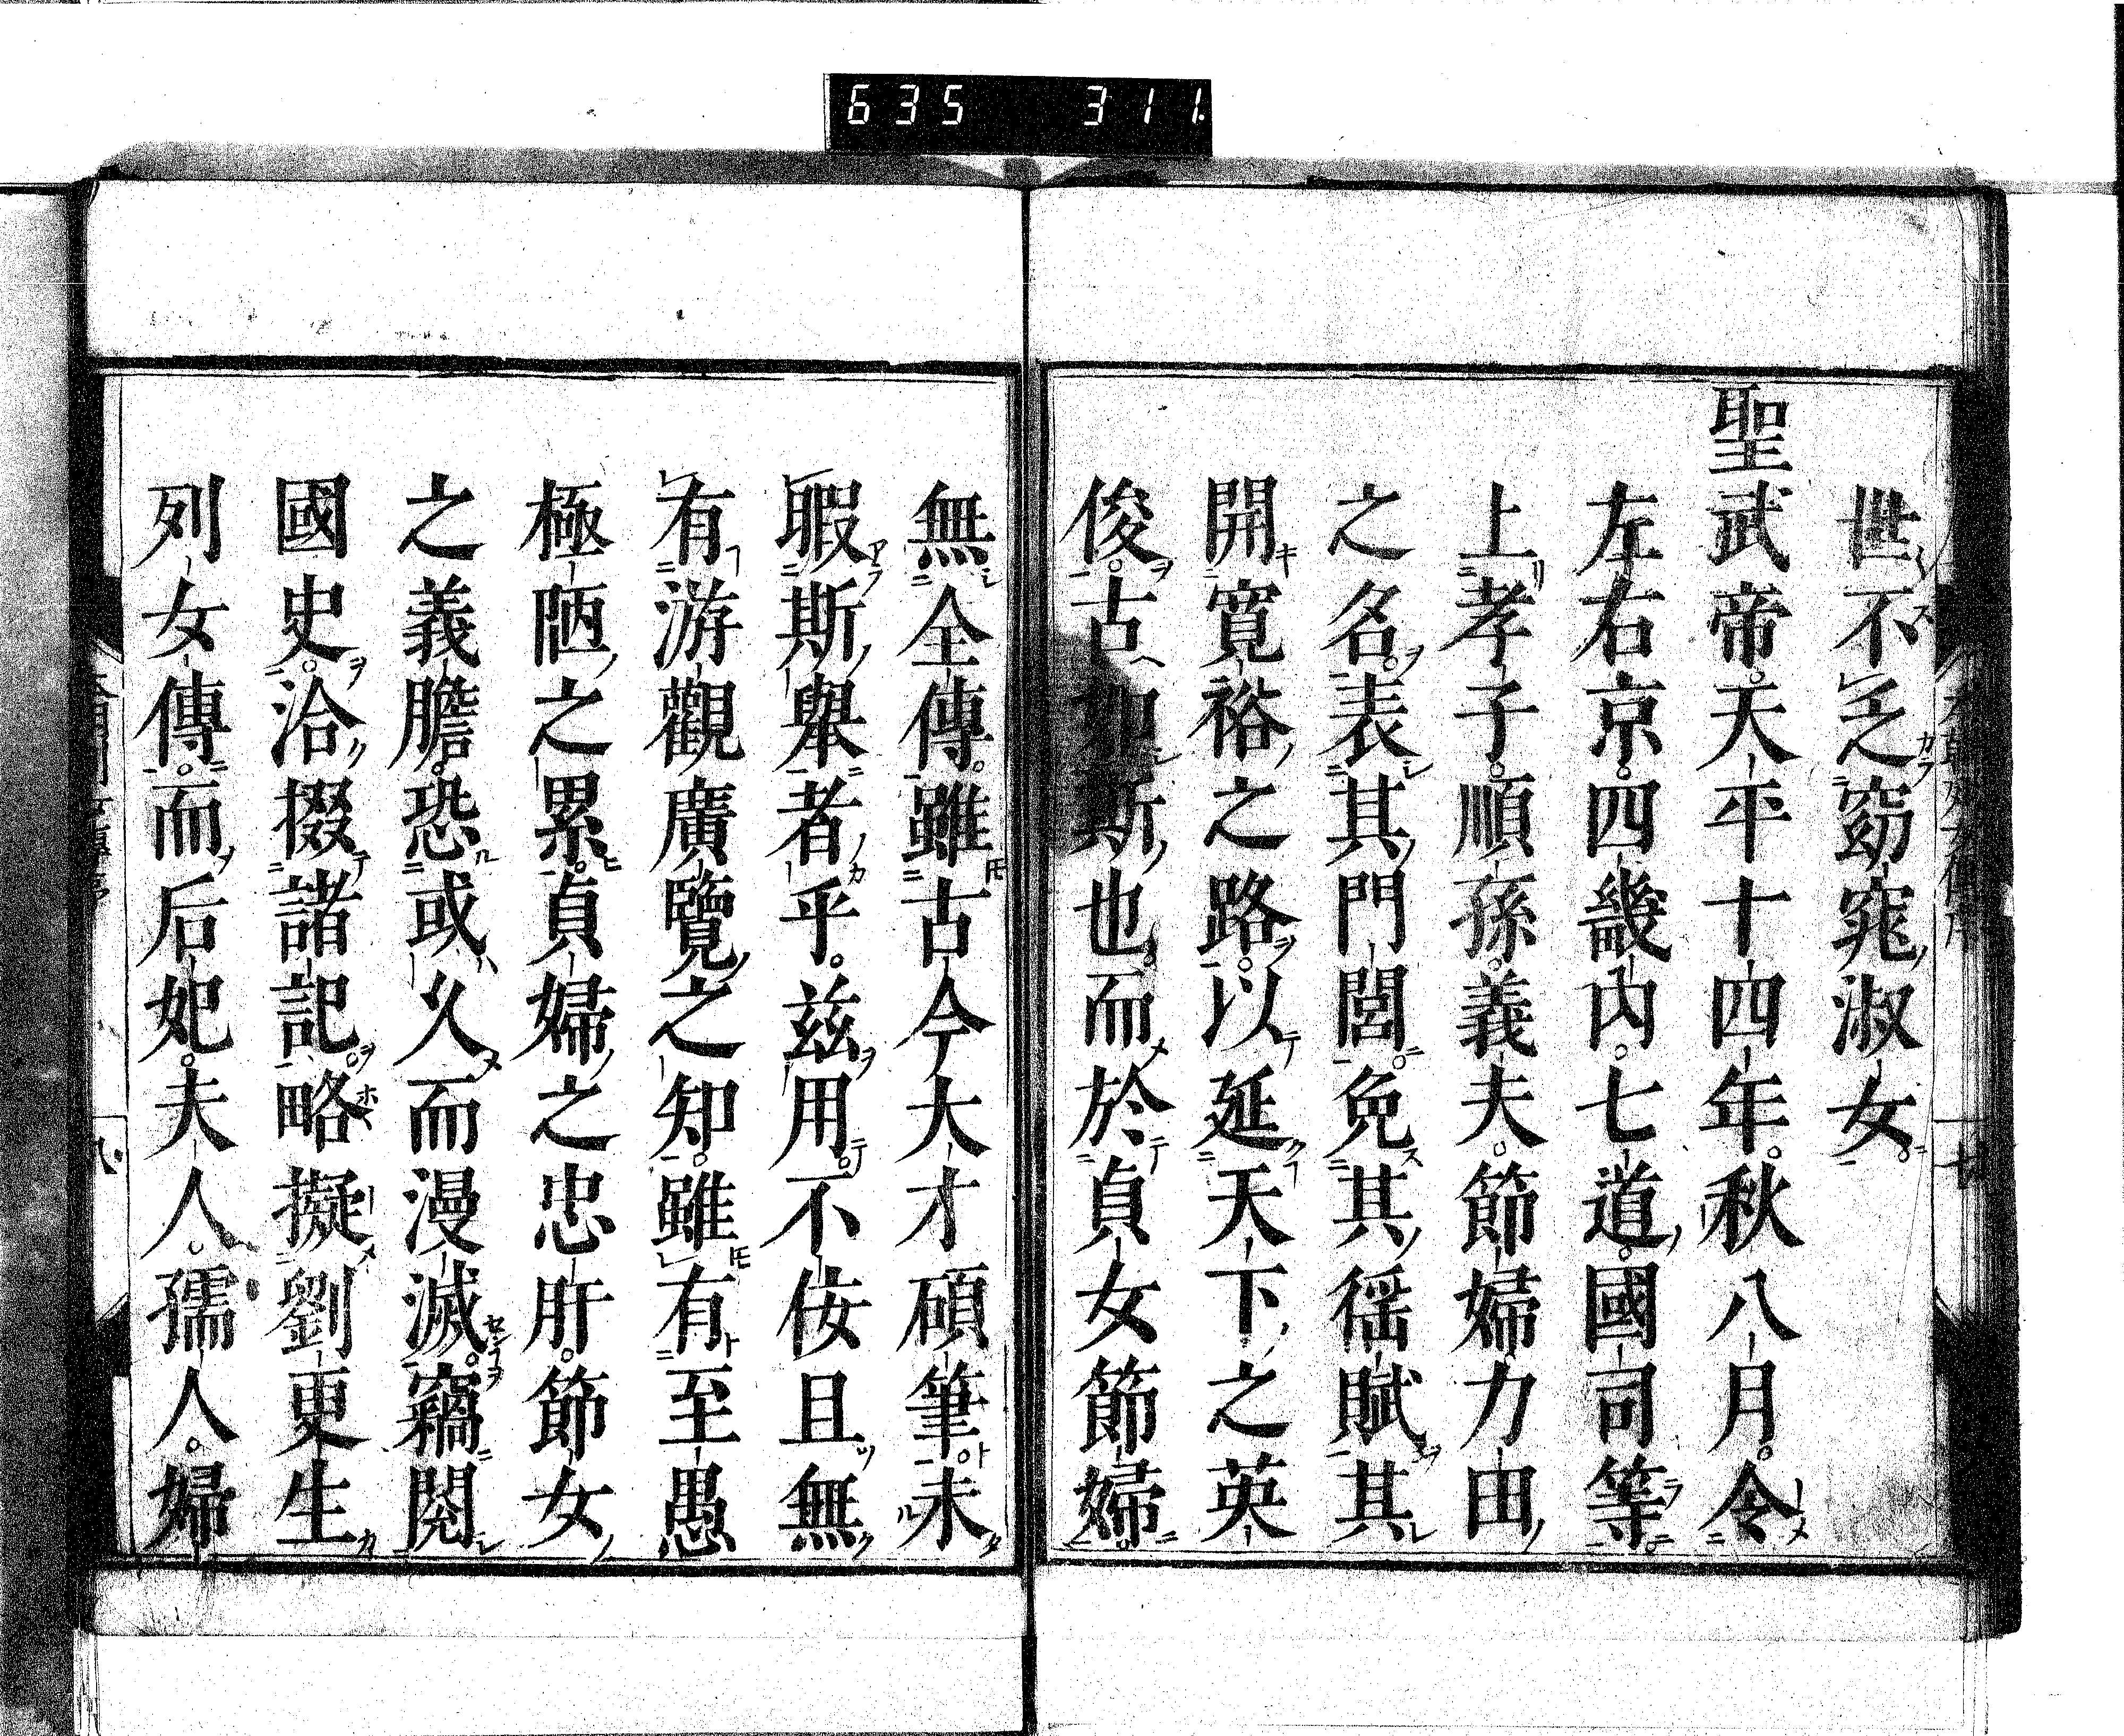 635 311
世不乏窈窕淑女。
聖武帝。天平十四年。秋八月。令
左右京。四畿內。七道。國司等。
上孝子。順孫。義夫。節婦。力田
之名。表其門閭。免其徭賦。其
開寬裕之路。以延天下之英
俊。古如斯也。而於貞女節婦。
無全傳。雖古今大才碩筆。未
暇斯舉者乎。茲用不佞且無
有游觀廣覽之知。雖有至愚
極陋之累。貞婦之忠肝。節女
之義膽。恐或久而漫滅。竊閱
國史。洽掇諸記。略擬劉更生
列女傳。而后妃。夫人。孺人。婦